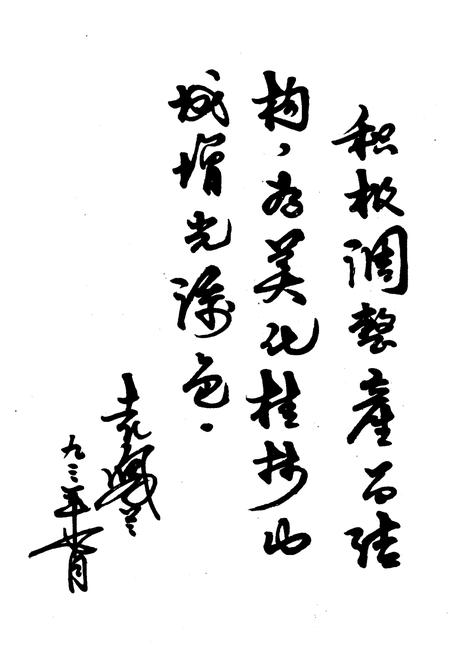 积极调整産品结
构，为美化桂林山
城增光添色．
袁凤兰
九三年